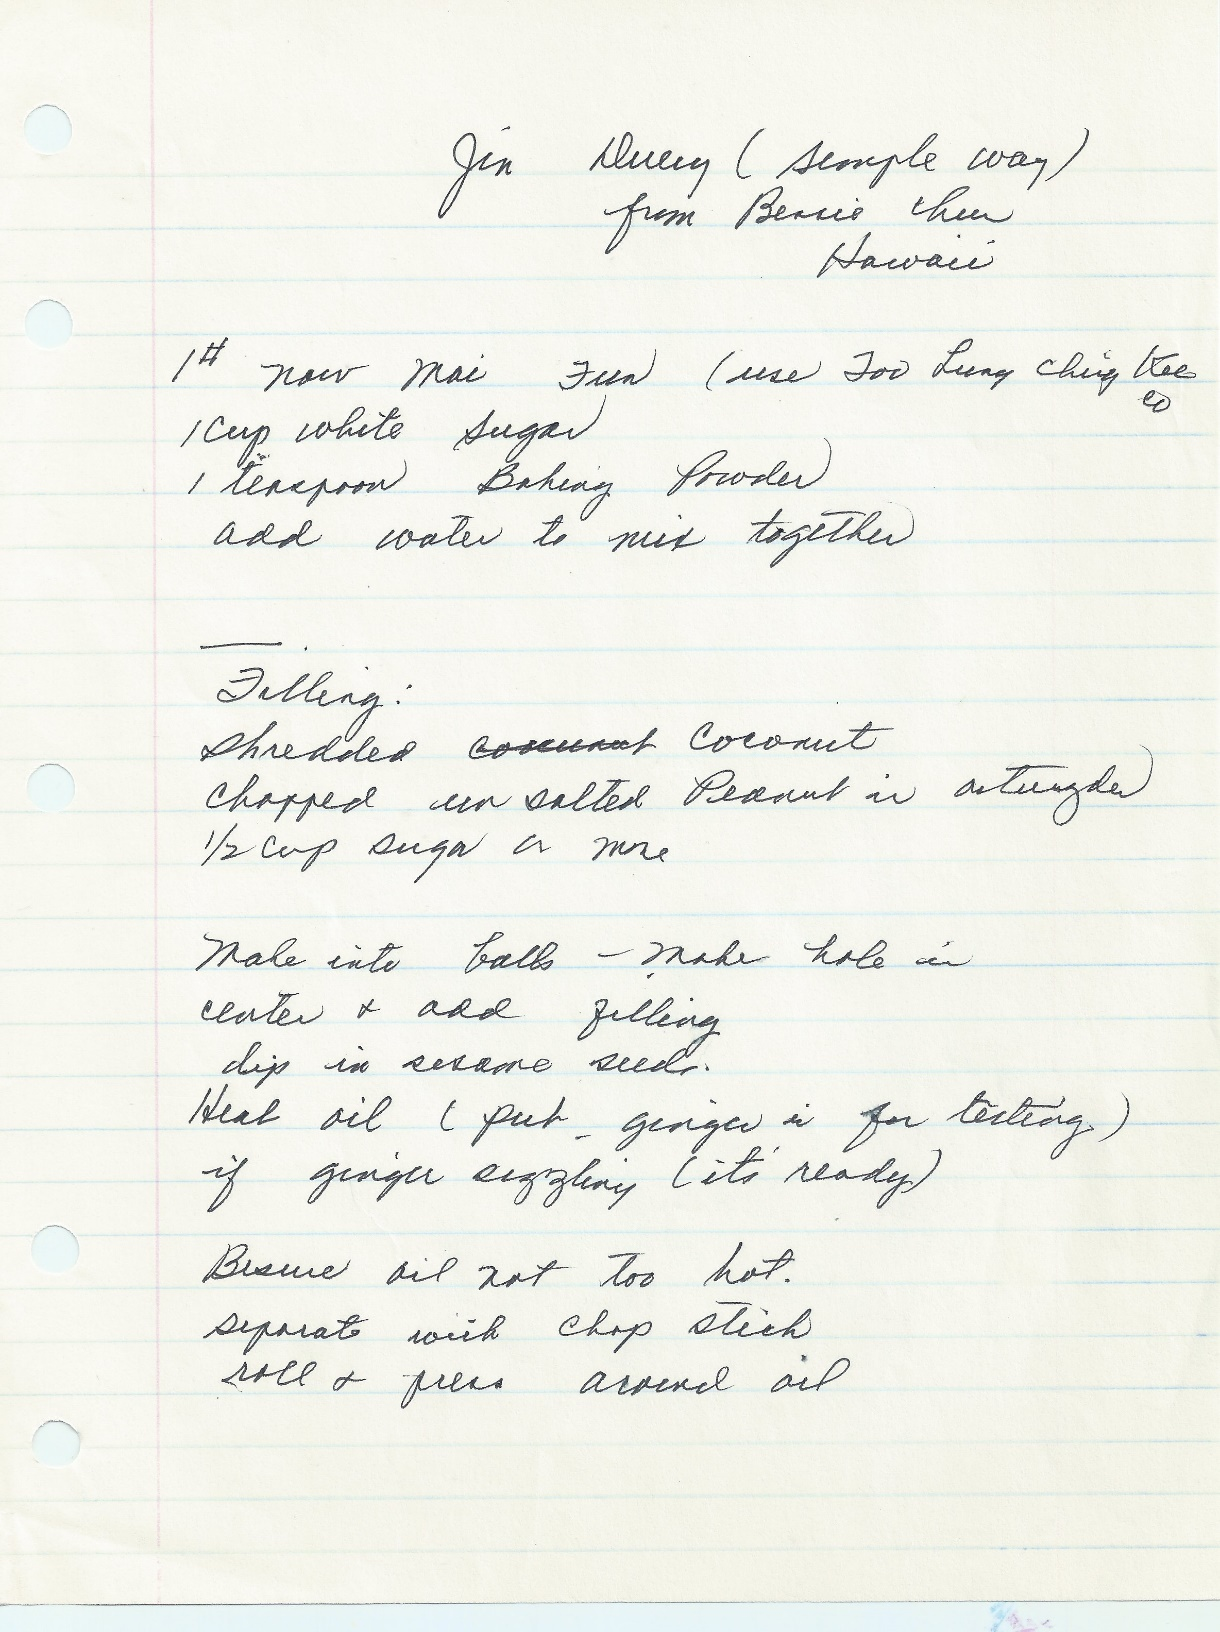 Jin Duey (simple way)
from Bessie Chun
Hawaii
1# now mai Fun (use Foo Lung Ching Kee
co
1 Cup white sugar
1 teaspoon Baking Powder
add water to mix together
Filling:
shredded coconut coconut
chopped un salted Peanut in
1/2 cup sugar or more
Make into balls – make hole in
center & add filling
dip in sesame seeds.
Heat oil (put ginger in for testing)
if ginger sizzling (it's ready)
Besure oil not too hot.
separate with chop stick
roll & press around oil